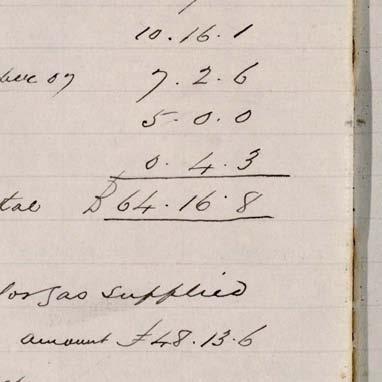 10.16.1
Dec 07 7.2.6
5.0.0
0.4.3
tal £64.16.8
for gas supplied
amount £48.13.6